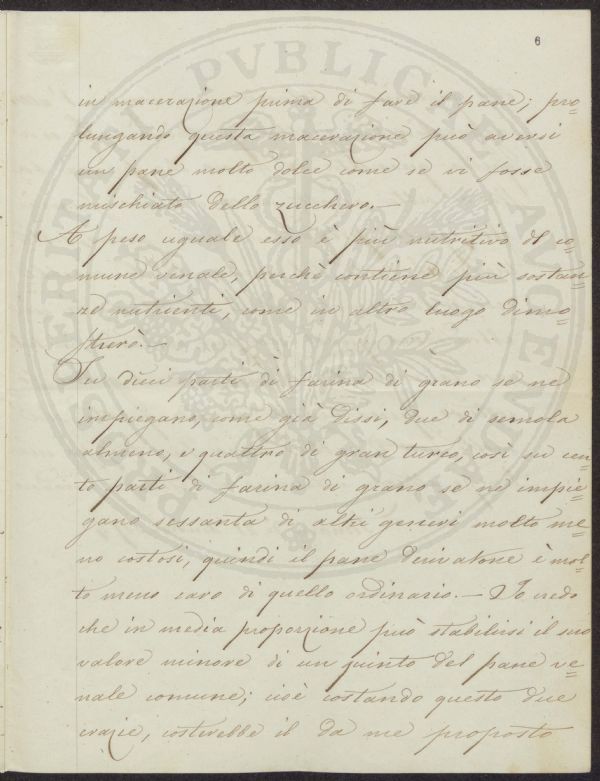 6
in macerazione prima di fare il pane; pro=
lungando questa macerazione può aversi
un pane molto dolce come se vi fosse
mischiato dello zucchero.—
A peso uguale esso è più nutritivo del co=
mune venale, perchè contiene più sostan=
ze nutrienti, come in altro luogo dimo=
strerò.—
Su dieci parti di farina di grano se ne
impiegano, come già dissi, due di semola
almeno, e quattro di gran turco, così su cen=
to parti di farina di grano se ne impie=
gano sessanta di altri generi molto me=
no costosi, quindi il pane derivatone è mol=
to meno caro di quello ordinario.— Io credo
che in media proporzione può stabilirsi il suo
valore minore di un quinto del pane ve=
nale comune; cioè costando questo due
crazie, costerebbe il da me proposto